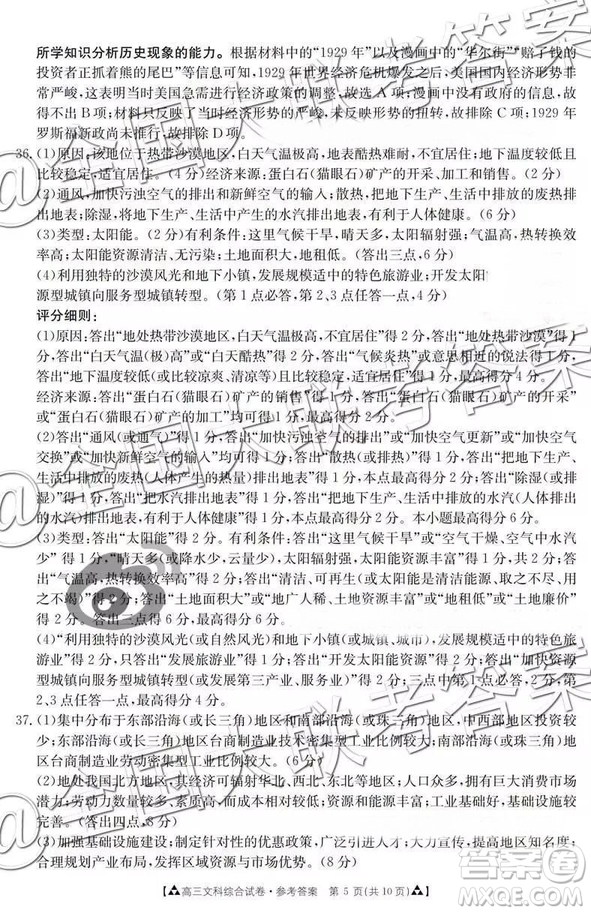 所学知识分析历史现象的能力。根据材料中的“1929 年”以及漫画中的“华尔街”“赔了钱的
投资者正抓着熊的尾巴”等信息可知,1929 年世界经济危机爆发后,美国国内经济形势非
常严峻,这反映了当时经济形势严峻,故选 A 项;漫画中没有涉及美国政府的态度,故
得不出 B 项;
36. (1)原因:该地位于热带沙漠地区,白天气温极高,地表酷热难耐,不宜居住;地下气温较低且
比较稳定,适宜居住。(4 分)经济来源:蛋白石(猫眼石)矿产的开采、加工和销售。(2 分)
(2)通风,加快污浊空气的排出和新鲜空气的输入;散热,把地下生产、生活中排放的废热排
出地表;除湿,将地下生产、生活中产生的水汽排出地表,有利于人体健康。(6 分)
(3)类型:太阳能。(2 分)有利条件:这里气候干旱,晴天多,太阳辐射强;气温高,热转换效
率高;太阳能资源清洁、无污染;土地面积大,地价低。(答出三点,6 分)
(4)利用独特的沙漠风光和地下小镇,发展规模适中的特色旅游业;开发太阳
源型城镇向服务型城镇转型。(第 1 点必答,第 2、3 点任答一点,4 分)
评分细则:
(1)原因:答出“地处热带沙漠地区,白天气温极高,不宜居住”得 2 分,答出“热带沙漠”得 1
分,答出“白天气温(极)高”或“白天酷热”得 2 分,答出“气候炎热”或意思相近的酌情给
分;答出“地下气温较低(或比较凉爽、清凉等)且比较稳定,适宜居住”得 2 分,最高得 4 分。
经济来源:答出“蛋白石(猫眼石)矿产的开采、加工和销售”得 2 分,答出“蛋白石(猫眼石)矿产的开采”
或“蛋白石(猫眼石)矿产的加工”均可得 1 分。
(2)答出“通风(或干燥)”得 1 分,答出“加快污浊空气的排出”或“加快空气更新”或“加快空气
交换”或“加快新鲜空气的输入”得 1 分;答出“散热(或排热)”得 1 分,答出“把地下生产、生
活中排放的废热(或人体产生的热量)排出地表”得 1 分,本点最高得 2 分;答出“除湿(或排
湿)”得 1 分,答出“把水汽排出地表”或“把地下生产、生活中排放的水汽(或人体排出的水
汽)排出地表”或“有利于人体健康”得 1 分,本点最高得 2 分。本小题最高得分 6 分。
(3)类型:答出“太阳能”得 2 分。有利条件:答出“这里气候干旱”或“空气干燥、空气中水汽
少”得 1 分,“晴天多(或降水少,云量少),太阳辐射强,太阳能资源丰富”得 1 分,共 2 分;答出
“气温高,热转换效率高”得 2 分;答出“清洁、可再生(或太阳能是清洁能源)、无污染”得
2 分;答出“土地面积大”或“地广人稀、土地成本低”或“地价低”或“土地价格低、土地廉价”
得 2 分。答出三点得 6 分,最高得 6 分。
(4)“利用独特的沙漠风光(或自然风光)和地下小镇(或城镇、城市),发展规模适中的特色旅
游业”得 2 分,答出“发展旅游业”得 1 分;答出“开发太阳能资源”得 2 分;答出“由资源型
城镇向服务型城镇转型(或发展第三产业、服务业)”得 2 分,第 1 点必答,最高得 2 分,第
2、3 点任答一点,最高得分 4 分。
37. (1)集中分布于东部沿海(或长三角)地区和南部沿海(或珠三角)地区,中西部地区投资较
少;东部沿海(或长三角)地区台商制造业技术密集型工业比例较大;南部沿海(或珠三角)地
区台商制造业劳动密集型工业比例较大。(6 分)
(2)地处我国地理中部地区,经济可以辐射华北、西北、东北等地区;人口众多,拥有巨大消费市场
潜力;劳动力数量较多,且素质较高;资源和能源丰富;工业基础好,基础设施较为完
善。(答出四点,8 分)
(3)加强基础设施建设;制定针对性的优惠政策,广泛引进人才、大力宣传,提高地区知名度;
合理规划产业布局,发挥区域资源与市场优势。(8 分)
高三文科综合试卷·参考答案 第 5 页(共 10 页)
@全国大联考答案
答案圈
MXQE.COM